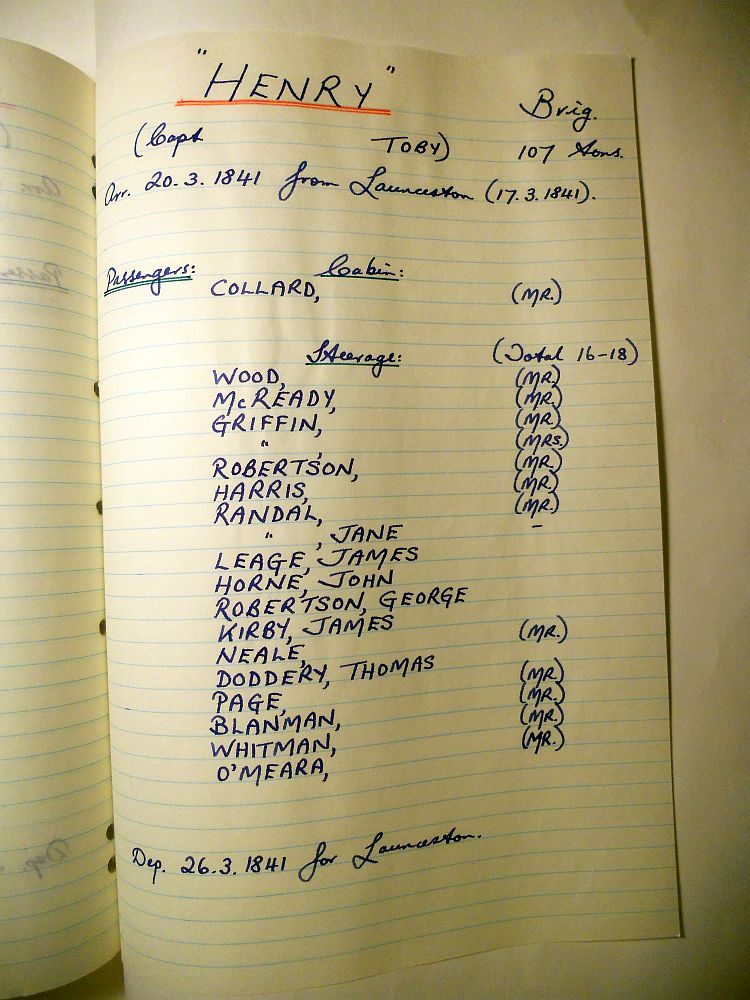 "HENRY" Brig.
(Capt TOBY) 107 tons.
Arr. 20.3.1841 from Launceston (17.3.1841).
Passengers: Cabin:
COLLARD, (MR.)
Steerage: (Total 16-18)
WOOD, (MR.)
McREADY, (MR.)
GRIFFIN, (MR.)
" , (MRS.)
ROBERTSON, (MR.)
HARRIS, (MR.)
RANDAL, (MR.)
" , JANE –
LEAGE, JAMES
HORNE, JOHN
ROBERTSON, GEORGE
KIRBY, JAMES
NEALE, (MR.)
DODDERY, THOMAS
PAGE, (MR.)
BLANMAN, (MR.)
WHITMAN, (MR.)
O'MEARA, (MR.)
Dep. 26.3.1841 for Launceston.